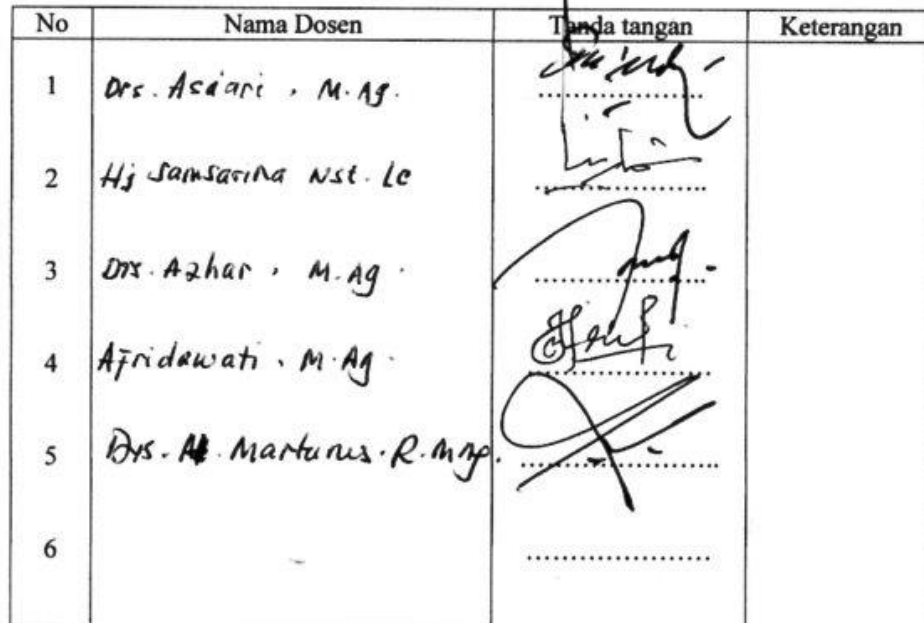 No Nama Dosen Tanda tangan Keterangan
1 Drs. Asiari, M.Ag.
2 Hj Samsarina Nst. Lc
3 Drs. Azhar, M.Ag.
4 Afridawati, M.Ag.
5 Drs. Martunus. R.
6